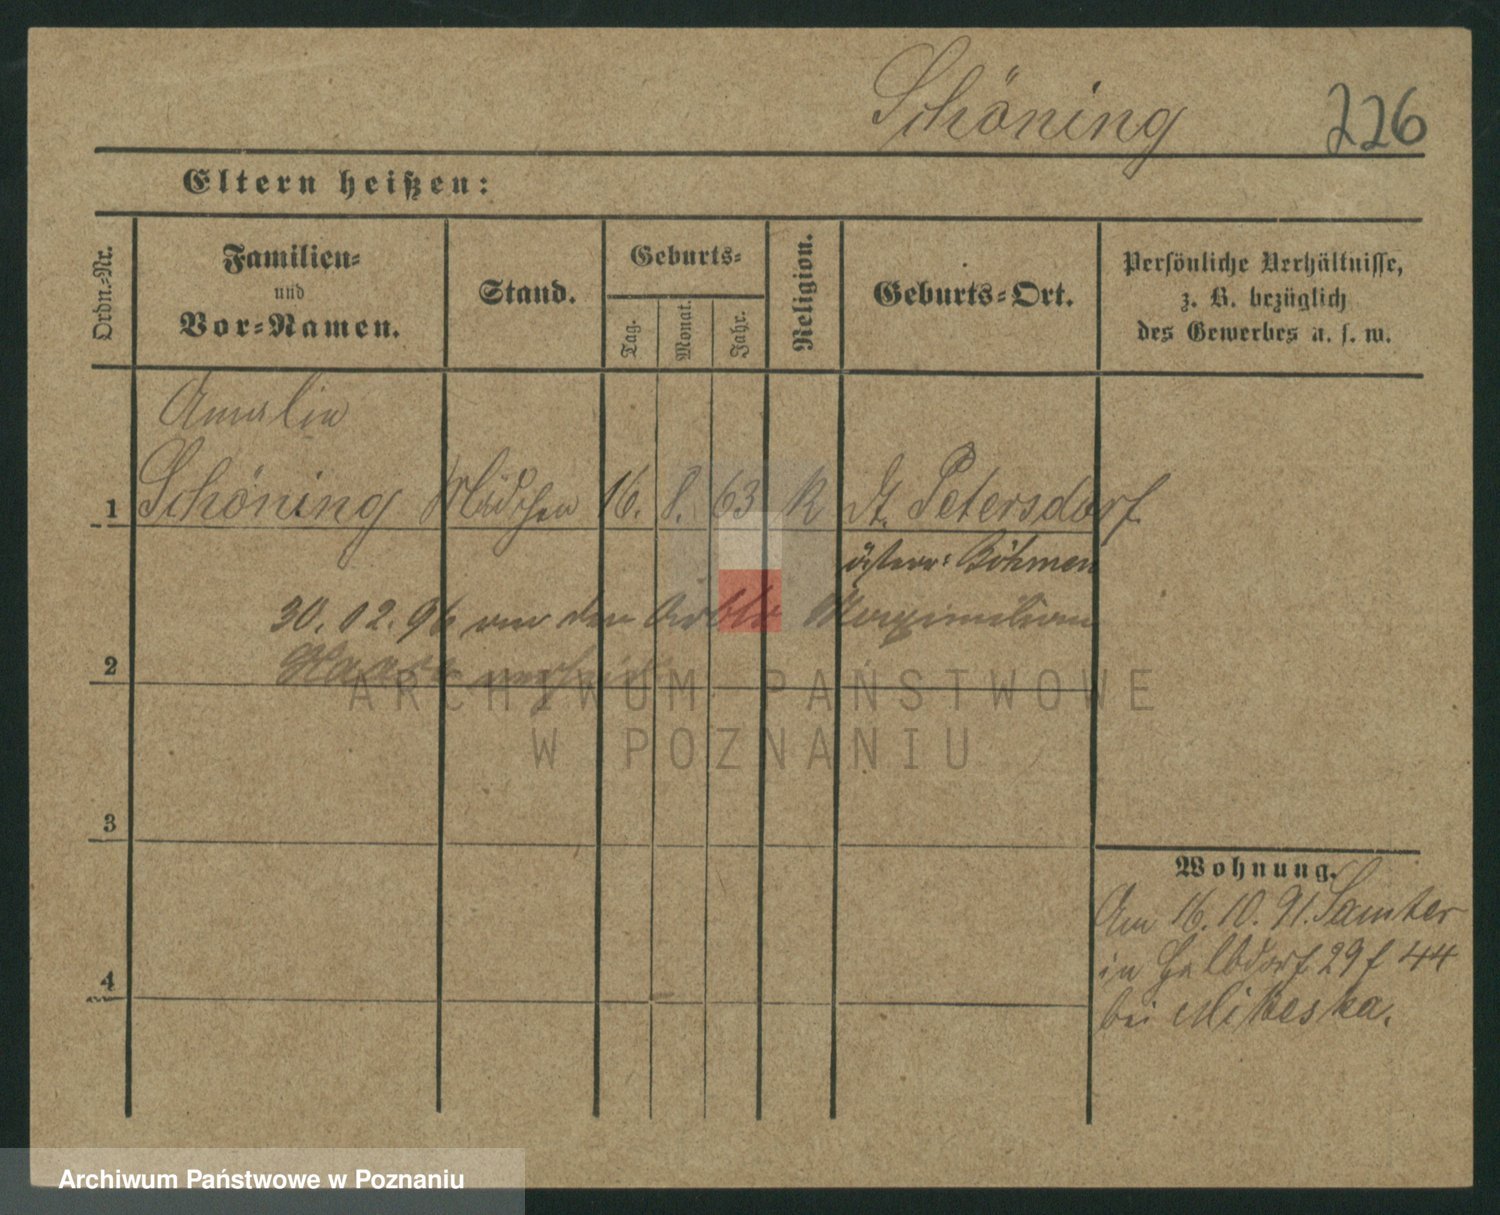 Schöning 226
Eltern heißen:
Ordn.-Nr.
Familien-
und
Vor-Namen.
Stand.
Geburts-
Tag.
Monat.
Jahr.
Religion.
Geburts-Ort.
Persönliche Verhältnisse,
z. B. bezüglich
des Gewerbes u. s. w.
Amalie
1 Schöning Mädchen 16. 8. 63 K Dt. Petersdorf
österr: Böhmen
30. 12. 96 an den Arbtr Maximilian
2
3
4
Wohnung.
Am 16. 10. 91. Samter
in Halbdorf 29 f 44
bei Mikeska.
ARCHIWUM PAŃSTWOWE
W POZNANIU
Archiwum Państwowe w Poznaniu